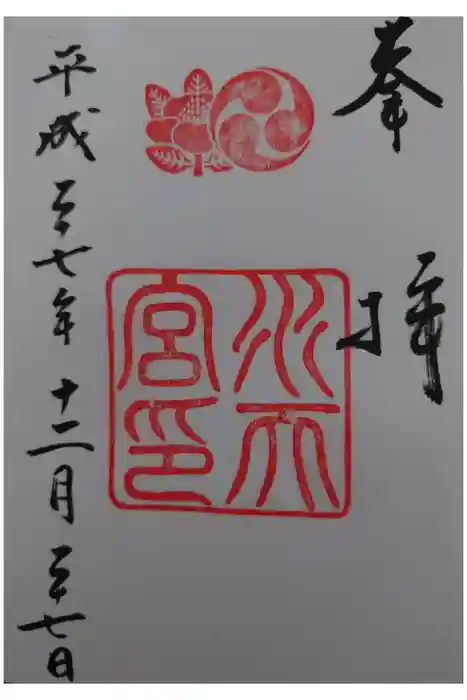 奉拝
水天宮印
平成二十七年十二月二十七日